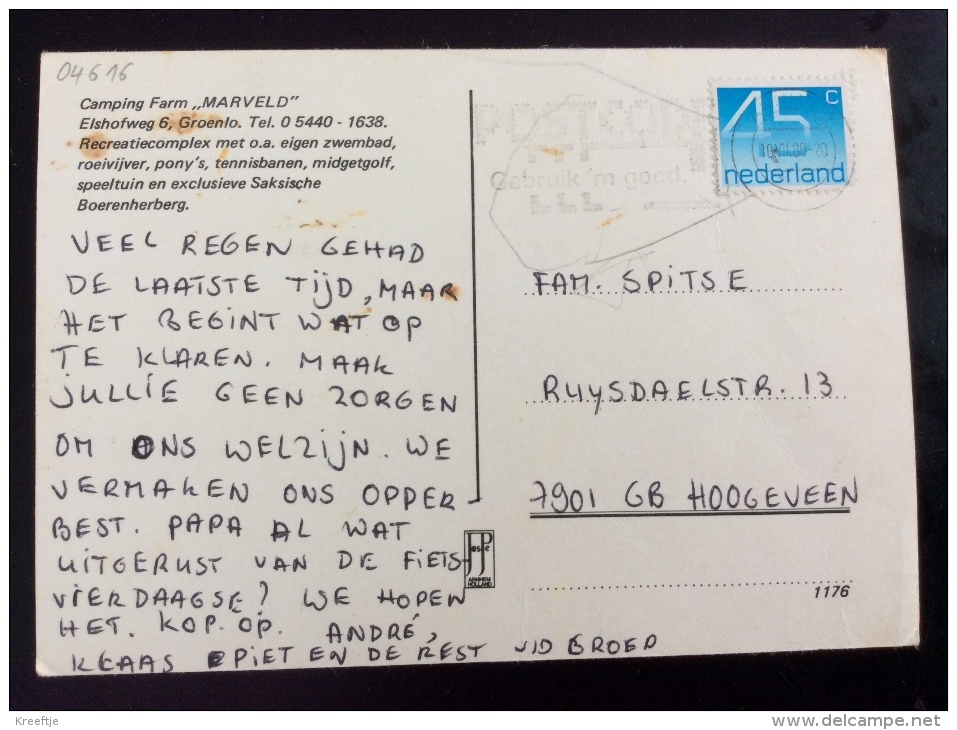 04616
Camping Farm „MARVELD"
Elshofweg 6, Groenlo. Tel. 0 5440 - 1638.
Recreatiecomplex met o.a. eigen zwembad,
roeivijver, pony's, tennisbanen, midgetgolf,
speeltuin en exclusieve Saksische
Boerenherberg.
VEEL REGEN GEHAD
DE LAATSTE TIJD, MAAR
HET BEGINT WAT OP
TE KLAREN. MAAK
JULLIE GEEN ZORGEN
OM ONS WELZIJN. WE
VERMAKEN ONS OPPER
BEST. PAPA AL WAT
UITGERUST VAN DE FIETS-
VIERDAAGSE? WE HOPEN
HET. KOP. OP. ANDRÉ,
KLAAS PIET EN DE REST V/D GROEP
POSTCODE
Gebruik 'm goed.
45 c
nederland
FAM. SPITSE
RUYSDAELSTR. 13
7901 GB HOOGEVEEN
JosPe
ARNHEM
HOLLAND
1176
Kreeftje
delcampe.net